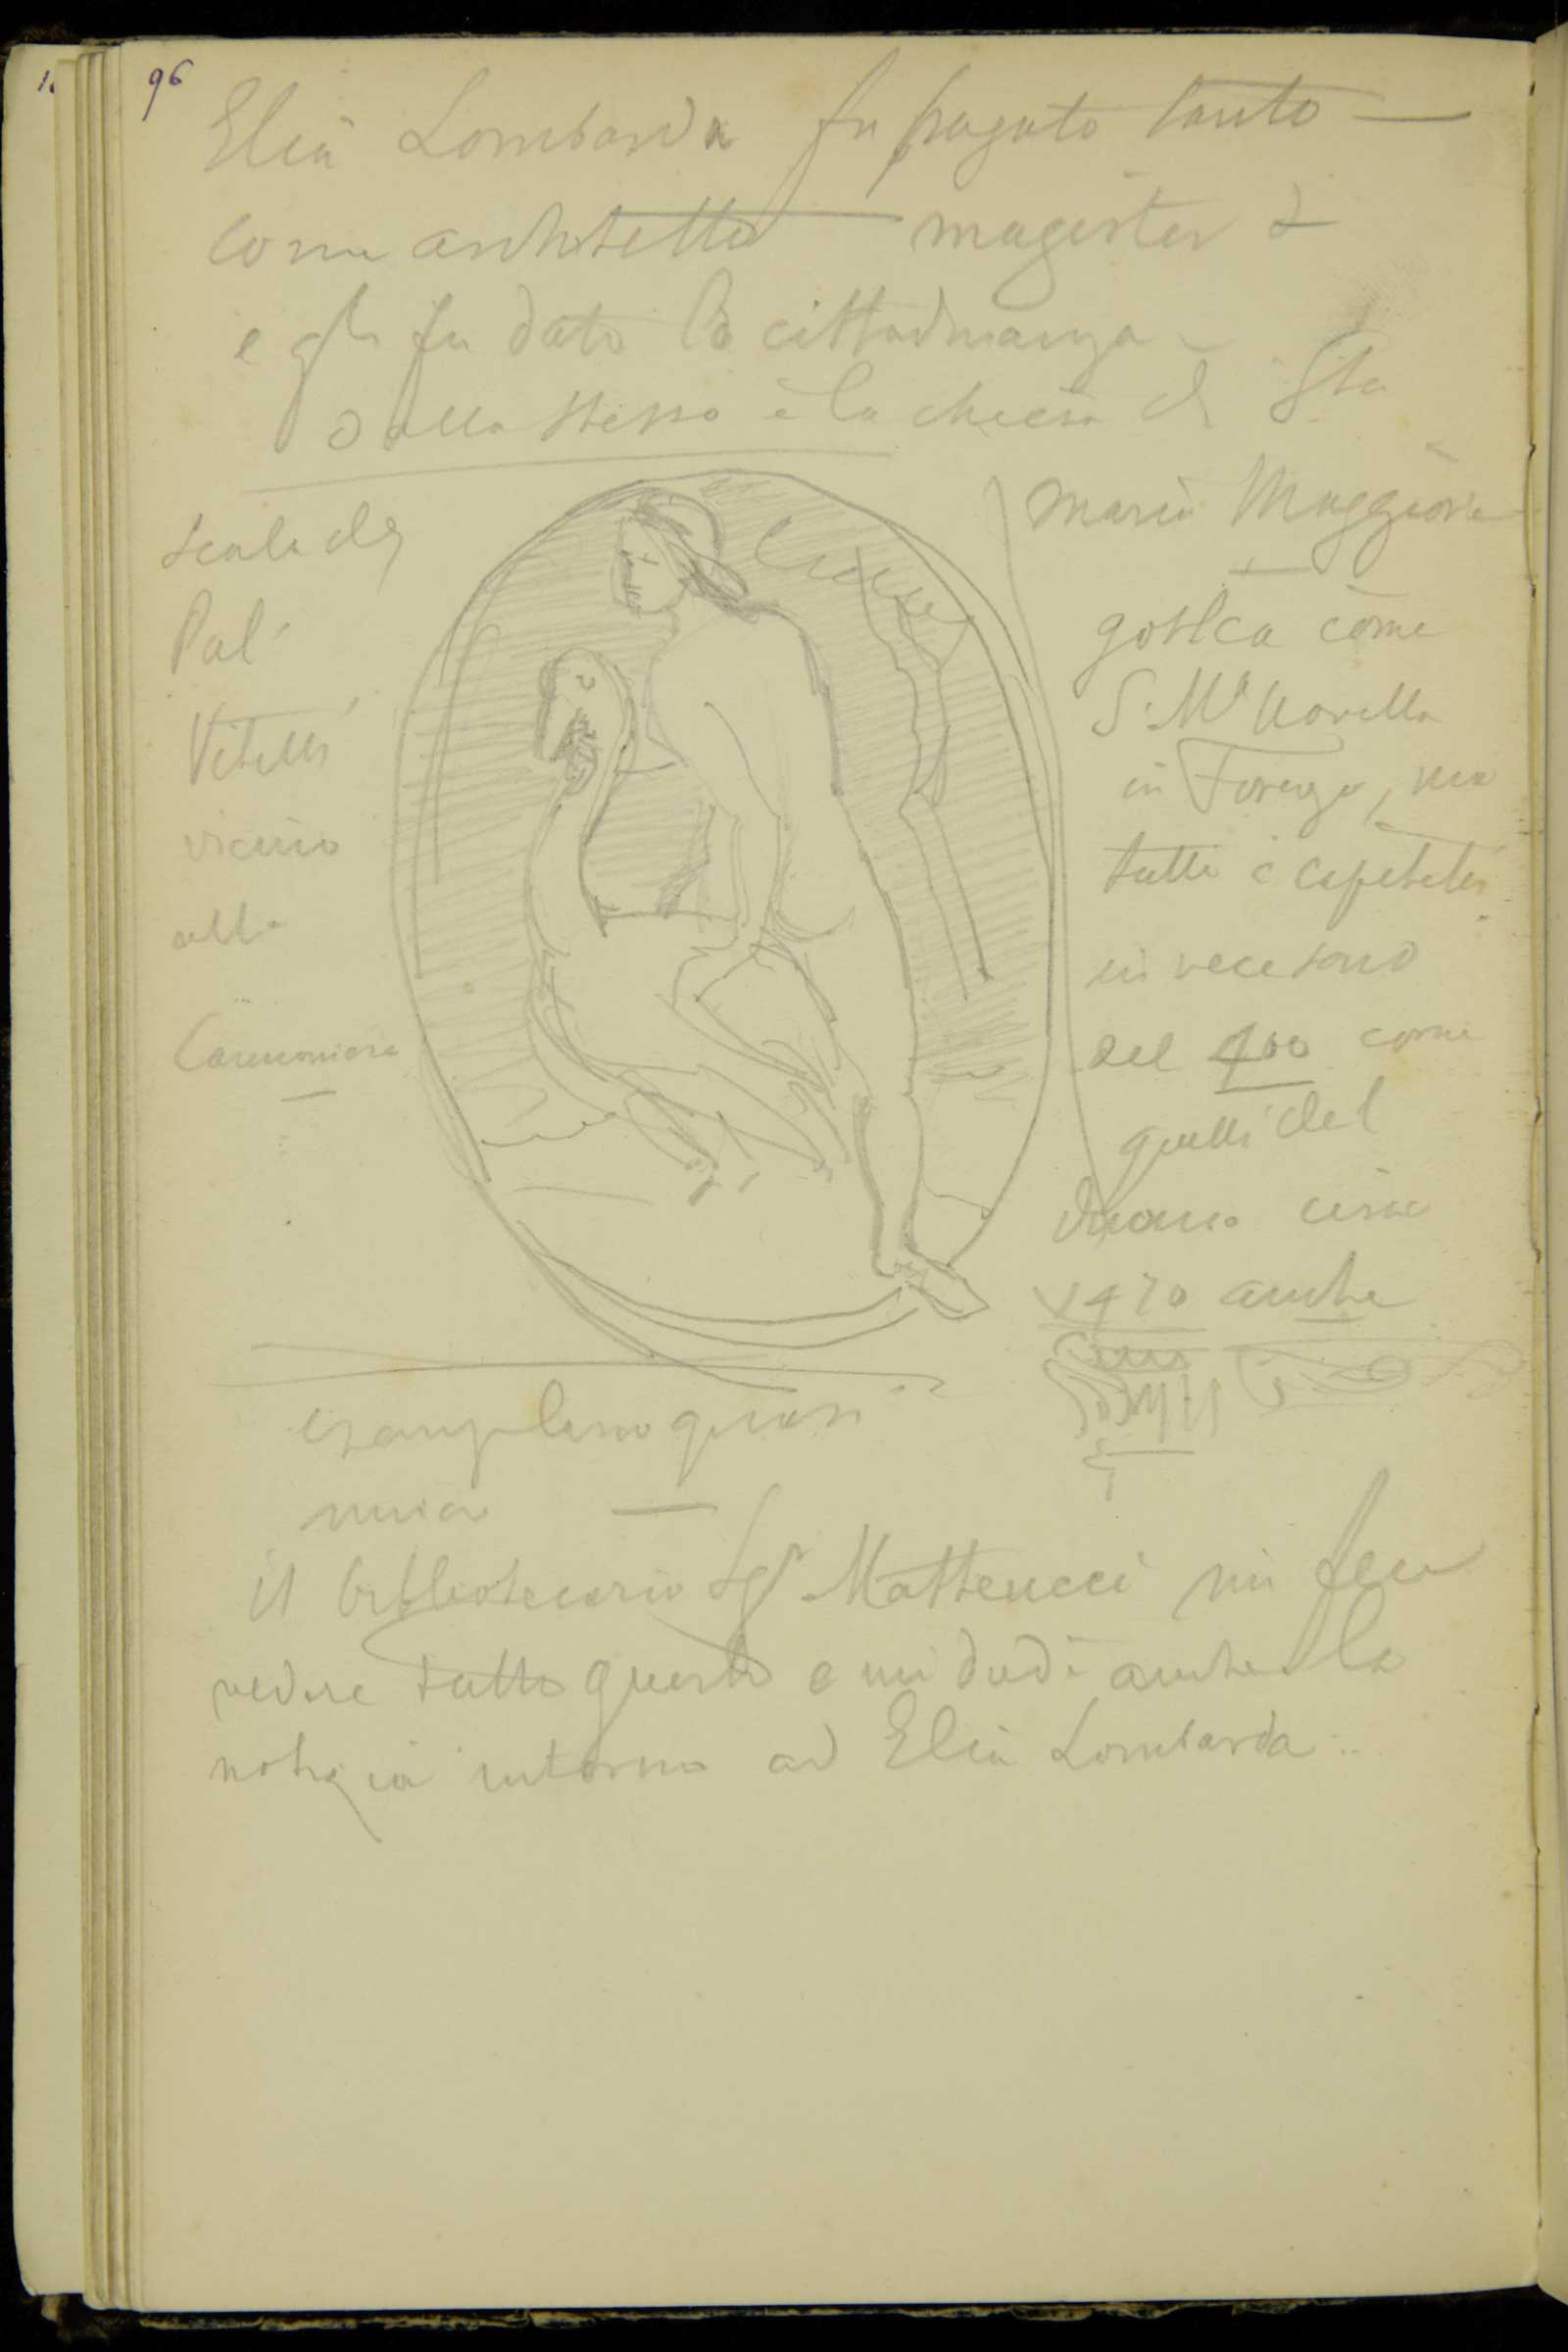 96
Elia Lombarda fu pagato tanto —
come architetto — magister &
e gli fu dato la cittadinanza —
Dallo stesso è la chiesa di Sta
Maria Maggiore
gotica come
S. Ma Novella
in Firenze, ma
tutti i capitelli
invece sono
del 400 come
quelli del
Duomo circa
1470 anche
Scala del
Pal
Vitelli
vicino
alla
Cannoniera
quasi
il bibliotecario Sgr Matteucci mi fece
vedere tutto questo e mi diede anche la
notizia intorno ad Elia Lombarda..